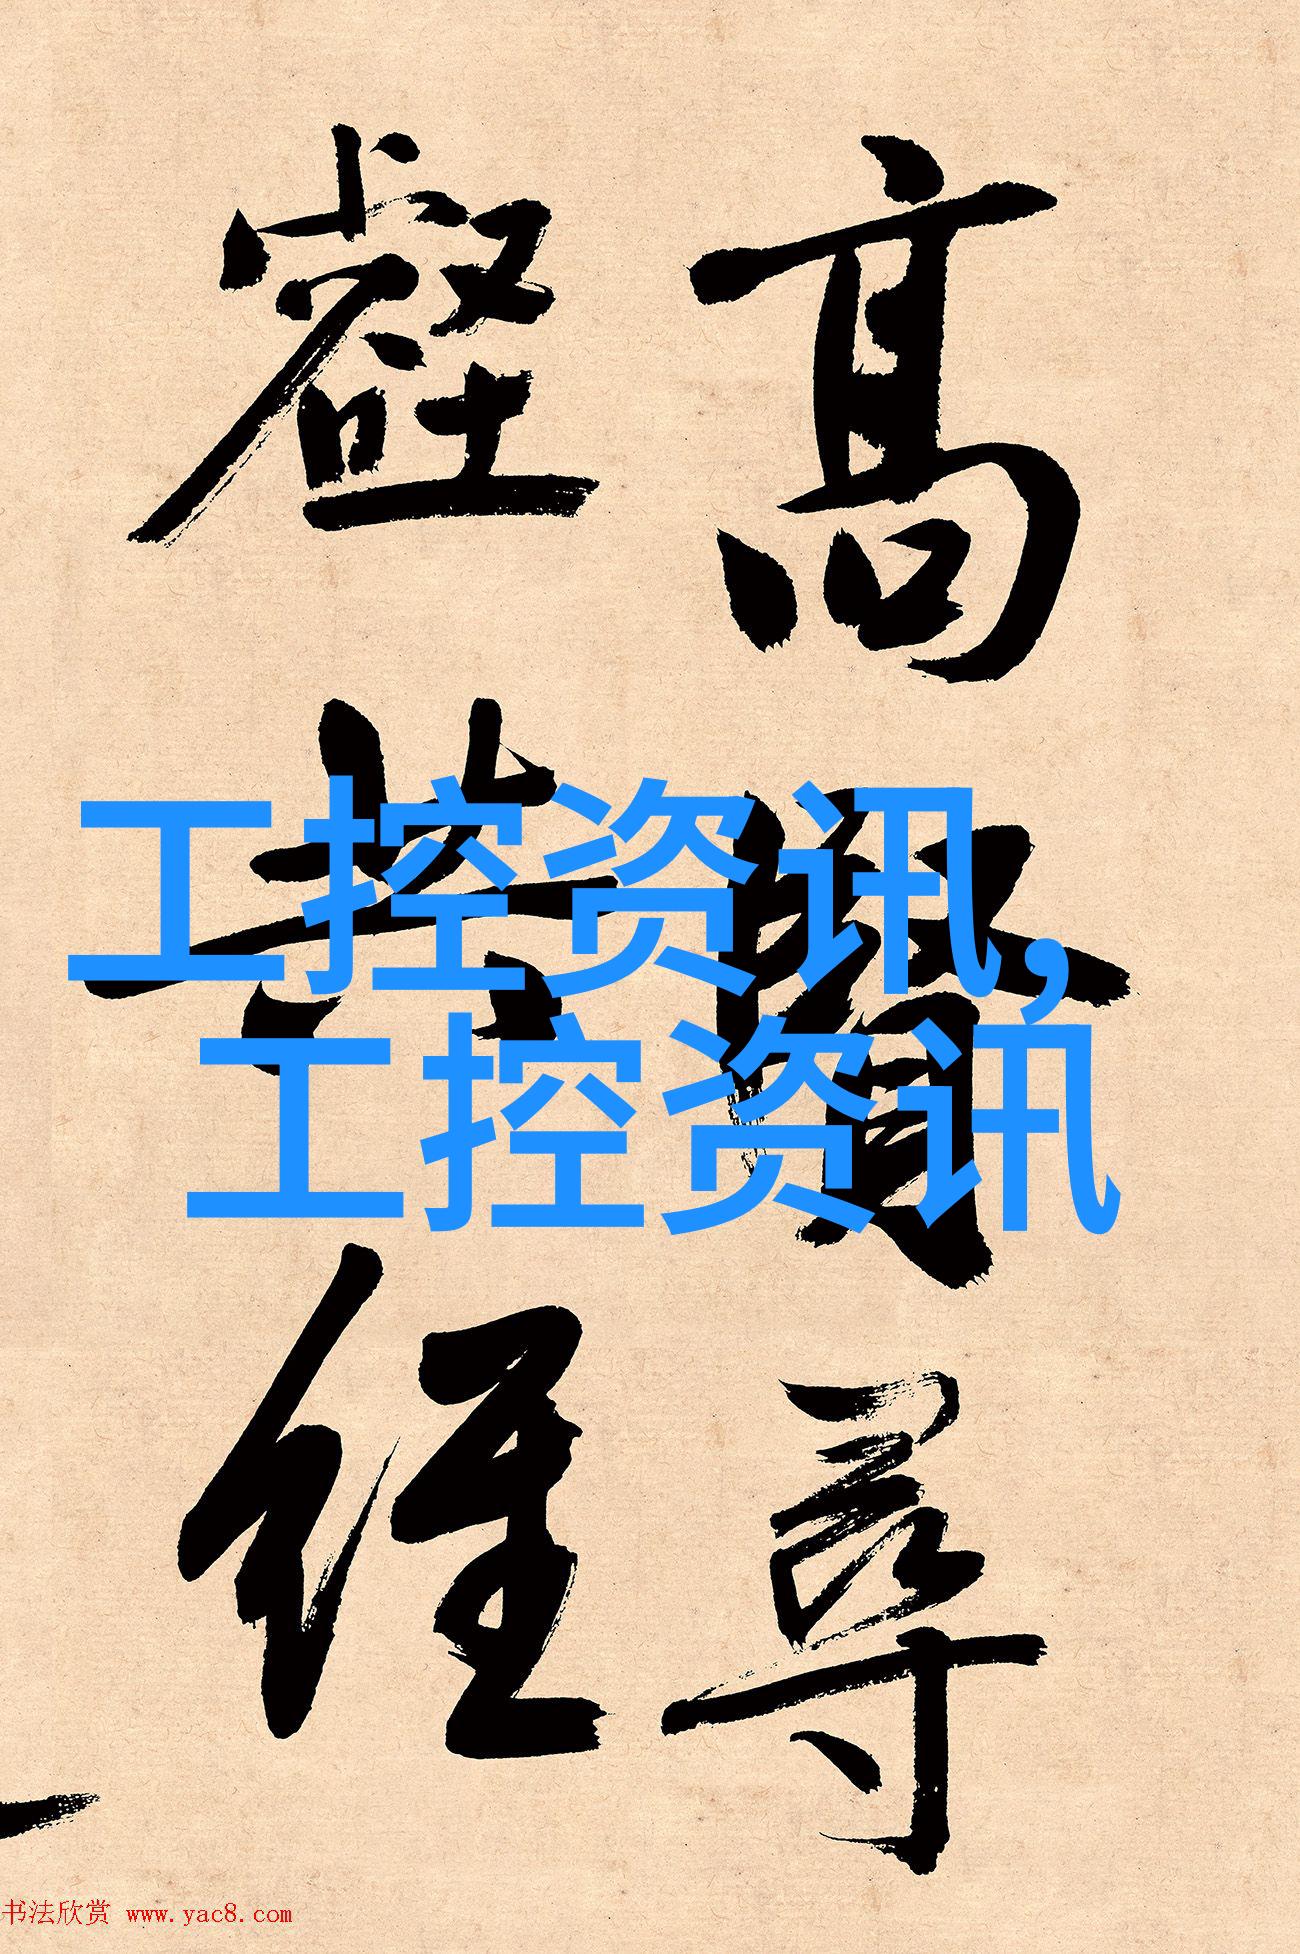 高賢尋
壑芸經
工控资讯,
工控资讯
书法欣赏 www.yac8.com